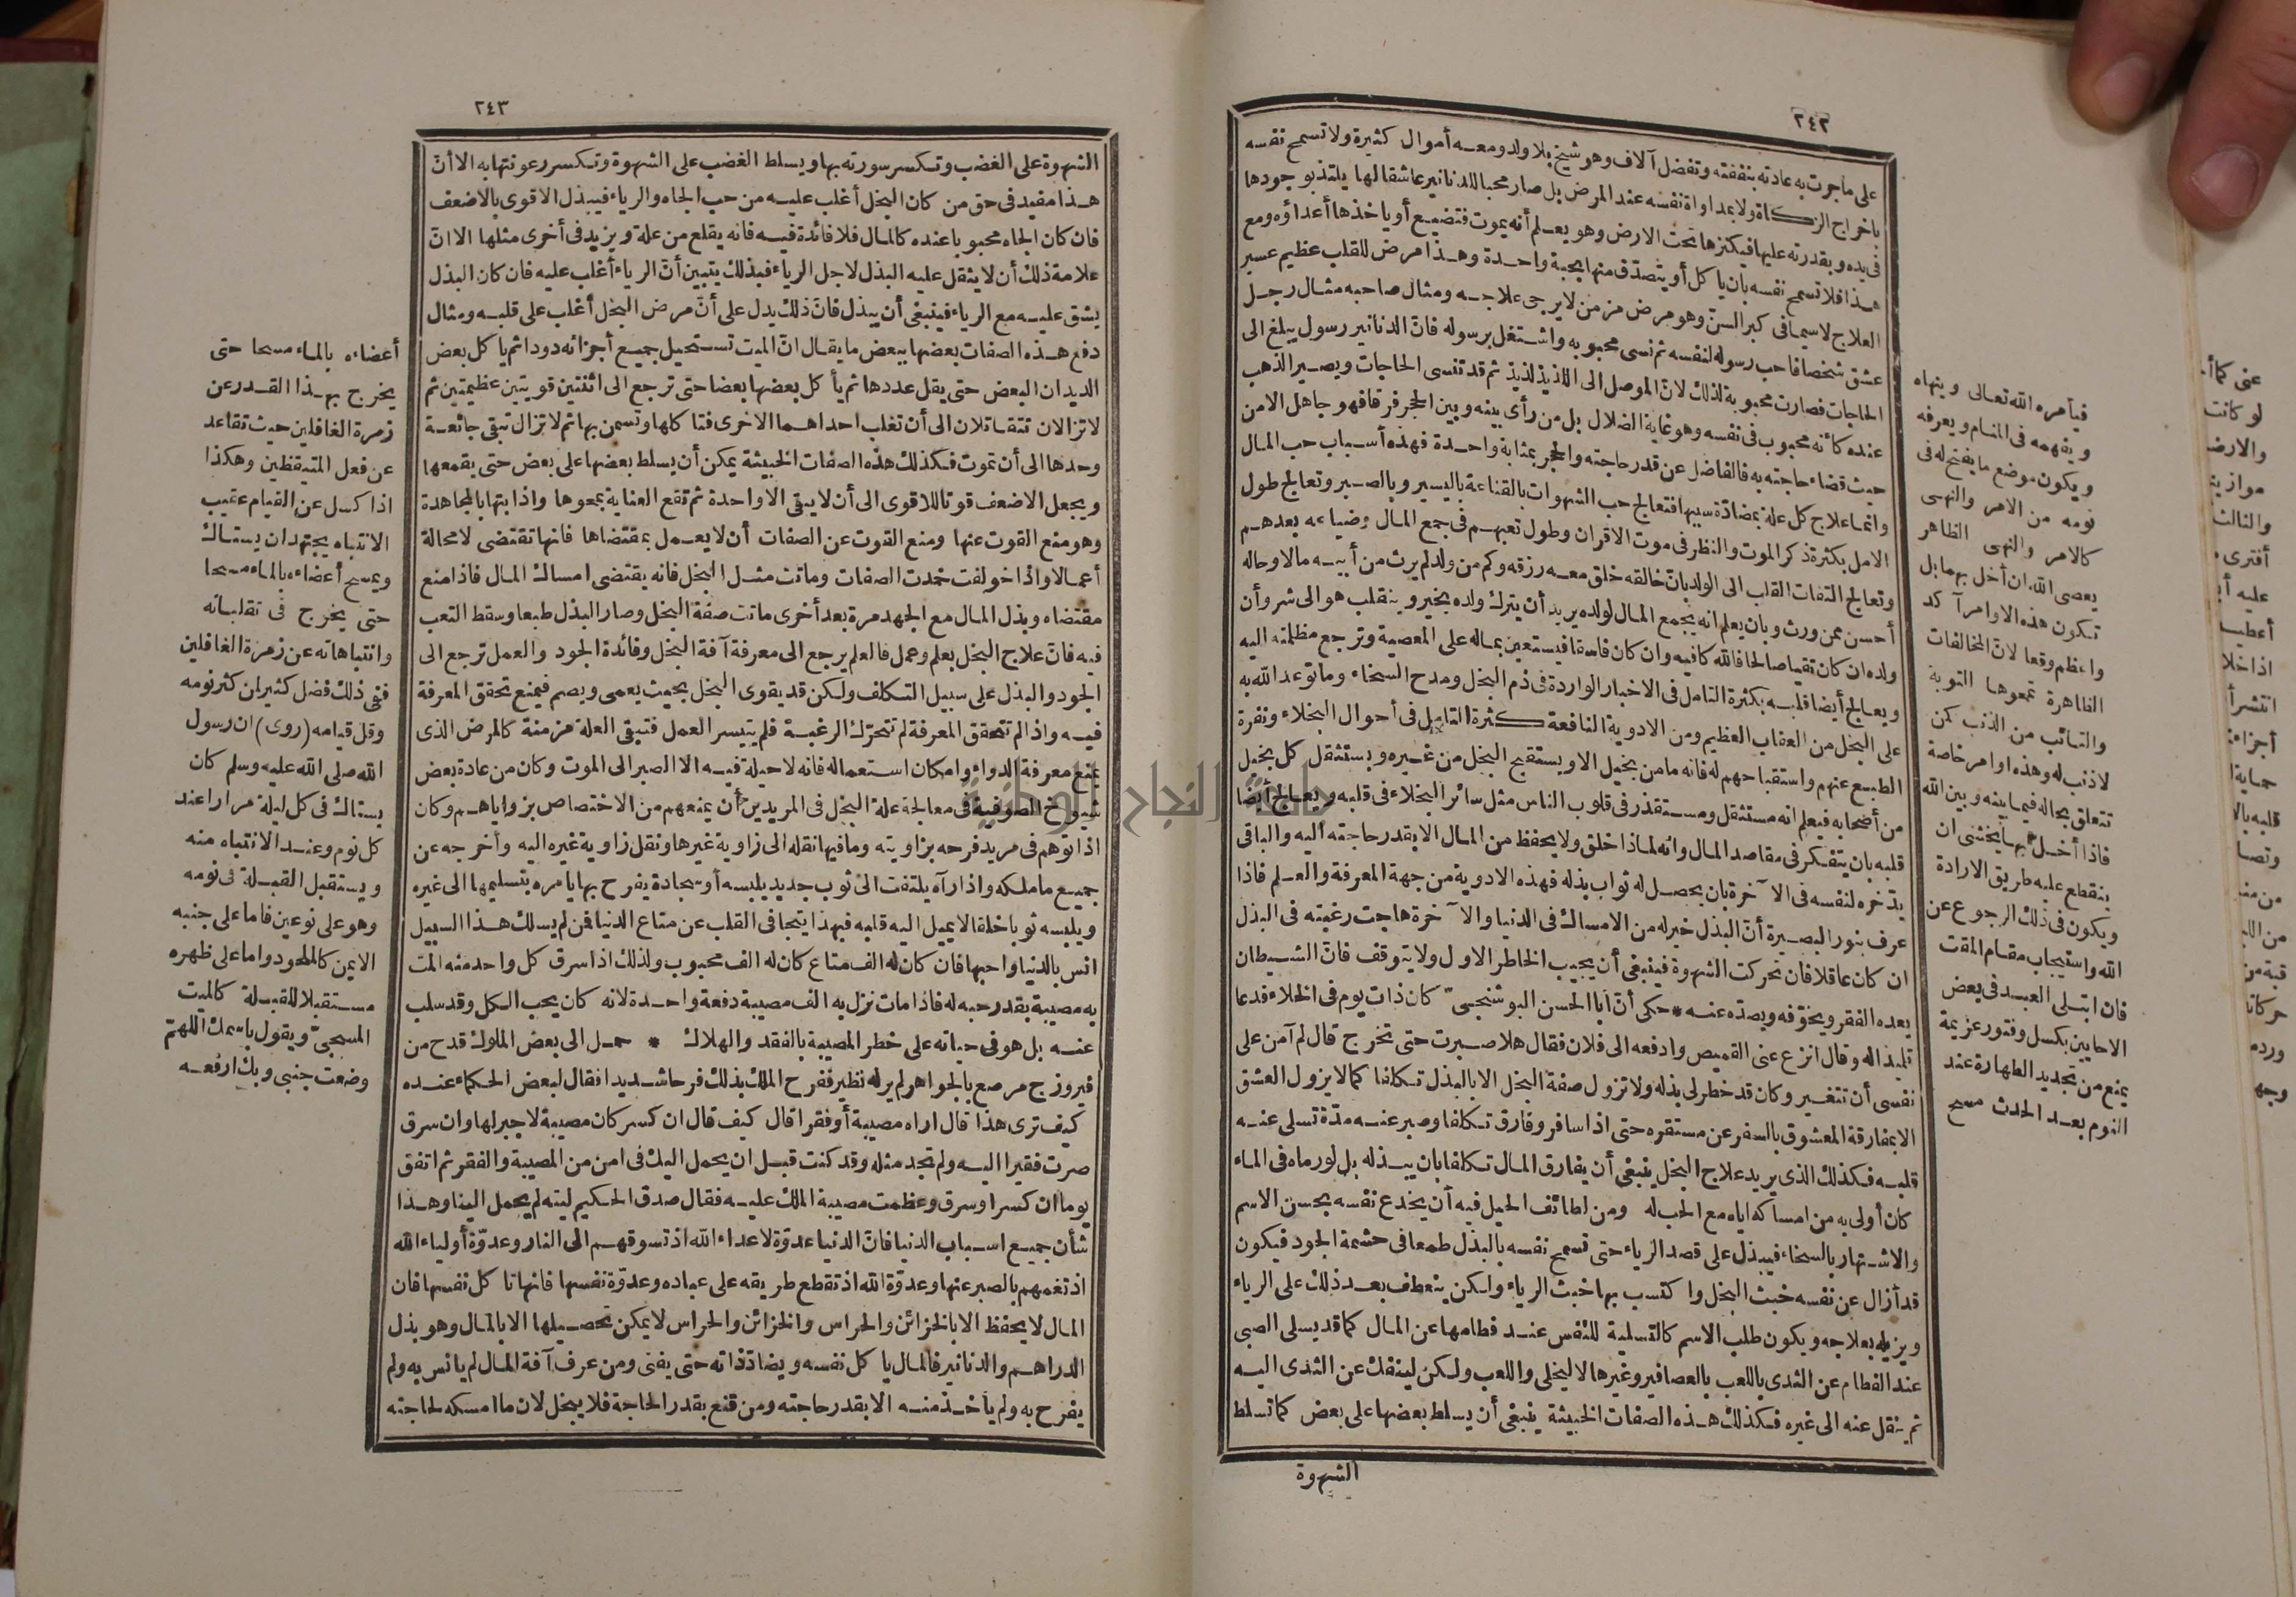 ٢٤٢
على ما جرت به عادته بنفقته وتفضل آلاف وهو شيخ بلا ولد ومعه أموال كثيرة ولا تسمح نفسه
باخراج الزكاة ولا بمداواة نفسه عند المرض بل صار محبا للدنانير عاشقا لها يلتذ بوجودها
فى يده وبقدرته عليها فيكنزها تحت الارض وهو يعلم أنه يموت فتضيع أو ياخذها أعداؤه ومع
هذا فلا تسمح نفسه بان يا كل أو يتصدق منها بحبة واحدة وهذا مرض للقلب عظيم عسير
العلاج لاسيما فى كبر السنّ وهو مرض مزمن لا يرجى علاجه ومثال صاحبه مثال رجل
عشق شخصا فاحب رسوله لنفسه ثم نسى محبوبه واشتغل برسوله فانّ الدنانير رسول يبلغ الى
الحاجات فصارت محبوبة لذلك لانّ الموصل الى اللذيذ لذيذ ثم قد تنسى الحاجات ويصير الذهب
عنده كانّه محبوب فى نفسه وهو غاية الضلال بل من رأى بينه وبين الحجر فرقا فهو جاهل الا من
حيث قضاء حاجته به فالفاضل عن قدر حاجته والحجر بمثابة واحدة فهذه أسباب حب المال
وانما علاج كل علة بمضادّة سببها فتعالج حب الشهوات بالقناعة باليسير وبالصبر وتعالج طول
الامل بكثرة ذكر الموت والنظر فى موت الاقران وطول تعبهم فى جمع المال وضياعه بعدهم
وتعالج التفات القلب الى الولد بانّ خالقه خلق معه رزقه وكم من ولد لم يرث من أبيه مالا وحاله
أحسن ممن ورث وبان يعلم انه يجمع المال لولده يريد أن يترك ولده بخير وينقلب هو الى شر وأن
ولده ان كان تقيا صالحا فالله كافيه وان كان فاسقا فيستعين بماله على المعصية وترجع مظلمته اليه
ويعالج أيضا قلبه بكثرة التامل فى الاخبار الواردة فى ذم البخل ومدح السخاء وما توعد الله به
على البخل من العقاب العظيم ومن الادوية النافعة كثرة التامل فى أحوال البخلاء ونفرة
الطبع عنهم واستقباحهم له فانه ما من بخيل الا ويستقبح البخل من غيره ويستثقل كل بخيل
من أصحابه فيعلم انه مستثقل ومستقذر فى قلوب الناس مثل سائر البخلاء فى قلبه ويعالج أيضا
قلبه بان يتفكر فى مقاصد المال وانه لماذا خلق ولا يحفظ من المال الا بقدر حاجته اليه والباقى
يدّخره لنفسه فى الآخرة بان يحصل له ثواب بذله فهذه الادوية من جهة المعرفة والعلم فاذا
عرف بنور البصيرة أنّ البذل خير له من الامساك فى الدنيا والآخرة هاجت رغبته فى البذل
ان كان عاقلا فان تحركت الشهوة فينبغى أن يجيب الخاطر الاول ولا يتوقف فانّ الشيطان
يعده الفقر ويخوّفه ويصدّه عنه * حكى أنّ أبا الحسن البوشنجىّ كان ذات يوم فى الخلاء فدعا
تلميذا له وقال انزع عنى القميص وادفعه الى فلان فقال هلا صبرت حتى تخرج قال لم آمن على
نفسى أن تتغير وكان قد خطر لى بذله ولا تزول صفة البخل الا بالبذل تكلفا كما لا يزول العشق
الا بمفارقة المعشوق بالسفر عن مستقره حتى اذا سافر وفارق تكلفا وصبر عنه مدّة تسلى عنه
قلبه فكذلك الذى يريد علاج البخل ينبغى أن يفارق المال تكلفا بان يبذله بل لو رماه فى الماء
كان أولى به من امساكه اياه مع الحب له ومن لطائف الحيل فيه أن يخدع نفسه بحسن الاسم
والاشتهار بالسخاء فيبذل على قصد الرياء حتى تسمح نفسه بالبذل طمعا فى حشمة الجود فيكون
قد أزال عن نفسه خبث البخل واكتسب بها خبث الرياء ولكن ينعطف بعد ذلك على الرياء
ويزيله بعلاجه ويكون طلب الاسم كالتسلية للنفس عند فطامها عن المال كما قد يسلى الصبى
عند الفطام عن الثدى باللعب بالعصافير وغيرها لا ليخلى واللعب ولكن لينفك عن الثدى اليه
ثم ينقل عنه الى غيره فكذلك هذه الصفات الخبيثة ينبغى أن يسلط بعضها على بعض كما تسلط
الشهوة
فيأمره الله تعالى وينهاه
ويفهمه فى المنام ويعرفه
ويكون موضع ما يفتح له فى
نومه من الامر والنهى
كالامر والنهى الظاهر
يعصى الله ان أخل بهما بل
تكون هذه الاوامر آكد
واعظم وقعا لانّ المخالفات
الظاهرة تمحوها التوبة
والتائب من الذنب كمن
لا ذنب له وهذه أوامر خاصة
تتعلق بحاله فيما بينه وبين الله
فاذا أخل بها يخشى ان
ينقطع عليه طريق الارادة
ويكون فى ذلك الرجوع عن
الله واستيجاب مقام المقت
فان ابتلى العبد فى بعض
الاحايين بكسل وفتور عزيمة
يمنع من تجديد الطهارة عند
النوم بعد الحدث مسح
٢٤٣
الشهوة على الغضب وتكسر سورته بها ويسلط الغضب على الشهوة وتكسر رعونتها به الا أنّ
هذا مفيد فى حق من كان البخل أغلب عليه من حب الجاه والرياء فيبذل الاقوى بالاضعف
فان كان الجاه محبوبا عنده كالمال فلا فائدة فيه فانه يقلع من علة ويزيد فى أخرى مثلها الا انّ
علامة ذلك أن لا يثقل عليه البذل لاجل الرياء فبذلك يتبين أنّ الرياء أغلب عليه فان كان البذل
يشق عليه مع الرياء فينبغى أن يبذل فانّ ذلك يدل على أنّ مرض البخل أغلب على قلبه ومثال
دفع هذه الصفات بعضها ببعض ما يقال انّ الميت تستحيل جميع أجزائه دودا ثم يا كل بعض
الديدان البعض حتى يقل عددها ثم يأ كل بعضها بعضا حتى ترجع الى اثنتين قويتين عظيمتين ثم
لا تزالان تتقاتلان الى أن تغلب احداهما الاخرى فتا كلها وتسمن بها ثم لا تزال تبقى جائعة
وحدها الى أن تموت فكذلك هذه الصفات الخبيثة يمكن أن يسلط بعضها على بعض حتى يقمعها
ويجعل الاضعف قوتا للاقوى الى أن لا يبقى الا واحدة ثم تقع العناية بمحوها واذابتها بالمجاهدة
وهو منع القوت عنها ومنع القوت عن الصفات أن لا يعمل بمقتضاها فانها تقتضى لا محالة
أعمالا واذا خولفت خمدت الصفات وماتت مثل البخل فانه يقتضى امساك المال فاذا منع
مقتضاه وبذل المال مع الجهد مرة بعد أخرى ماتت صفة البخل وصار البذل طبعا وسقط التعب
فيه فانّ علاج البخل بعلم وعمل فالعلم يرجع الى معرفة آفة البخل وفائدة الجود والعمل ترجع الى
الجود والبذل على سبيل التكلف ولكن قد يقوى البخل بحيث يعمى ويصم فيمنع تحقق المعرفة
فيه واذا لم تتحقق المعرفة لم تتحرّك الرغبة فلم يتيسر العمل فتبقى العلة مزمنة كالمرض الذى
يمنع معرفة الدواء وامكان استعماله فانه لا حيلة فيه الا الصبر الى الموت وكان من عادة بعض
شيوخ الصوفية فى معالجة علة البخل فى المريدين أن يمنعهم من الاختصاص بزواياهم وكان
اذا توهم فى مريد فرحه بزاويته وما فيها نقله الى زاوية غيرها ونقل زاوية غيره اليه وأخرجه عن
جميع ما ملكه واذا رآه يلتفت الى ثوب جديد يلبسه أو سجادة يفرح بها يامره بتسليمها الى غيره
ويلبسه ثوبا خلقا لا يميل اليه قلبه فبهذا يتجافى القلب عن متاع الدنيا فمن لم يسلك هذا السبيل
انس بالدنيا واحبها فان كان له الف متاع كان له الف محبوب ولذلك اذا سرق كل واحد منه المت
به مصيبة بقدر حبه له فاذا مات نزل به الف مصيبة دفعة واحدة لانه كان يحب الكل وقد سلب
عنه بل هو فى حياته على خطر المصيبة بالفقد والهلاك * حمل الى بعض الملوك قدح من
فيروزج مرصع بالجواهر لم ير له نظير ففرح الملك بذلك فرحا شديدا فقال لبعض الحكماء عنده
كيف ترى هذا قال اراه مصيبة أو فقرا قال كيف قال ان كسر كان مصيبة لا جبر لها وان سرق
صرت فقيرا اليه ولم تجد مثله وقد كنت قبل ان يحمل اليك فى امن من المصيبة والفقر ثم اتفق
يوما ان كسر او سرق وعظمت مصيبة الملك عليه فقال صدق الحكيم ليته لم يحمل الينا وهذا
شأن جميع اسباب الدنيا فانّ الدنيا عدوّة لاعداء الله اذ تسوقهم الى النار وعدوّة أولياء الله
اذ تغمهم بالصبر عنها وعدوّة الله اذ تقطع طريقه على عباده وعدوّة نفسها فانها تا كل نفسها فان
المال لا يحفظ الا بالخزائن والحراس والخزائن والحراس لا يمكن تحصيلها الا بالمال وهو بذل
الدراهم والدنانير فالمال يا كل نفسه ويضادّ ذاته حتى يفنى ومن عرف آفة المال لم يانس به ولم
يفرح به ولم يأخذ منه الا بقدر حاجته ومن قنع بقدر الحاجة فلا يبخل لان ما امسكه لحاجته
أعضاءه بالماء مسحا حتى
يخرج بهذا القدر عن
زمرة الغافلين حيث تقاعد
عن فعل المتيقظين وهكذا
اذا كسل عن القيام عقيب
الانتباه يجتهد ان يستاك
ويمسح أعضاءه بالماء مسحا
حتى يخرج فى تقلباته
وانتباهاته عن زمرة الغافلين
ففى ذلك فضل كثير ان كثر نومه
وقل قيامه (روى) ان رسول
الله صلى الله عليه وسلم كان
يستاك فى كل ليلة مرارا عند
كل نوم وعند الانتباه منه
ويستقبل القبلة فى نومه
وهو على نوعين فاما على جنبه
الايمن كالملحود واما على ظهره
مستقبلا للقبلة كالميت
المسجىّ ويقول باسمك اللهمّ
وضعت جنبى وبك ارفعه